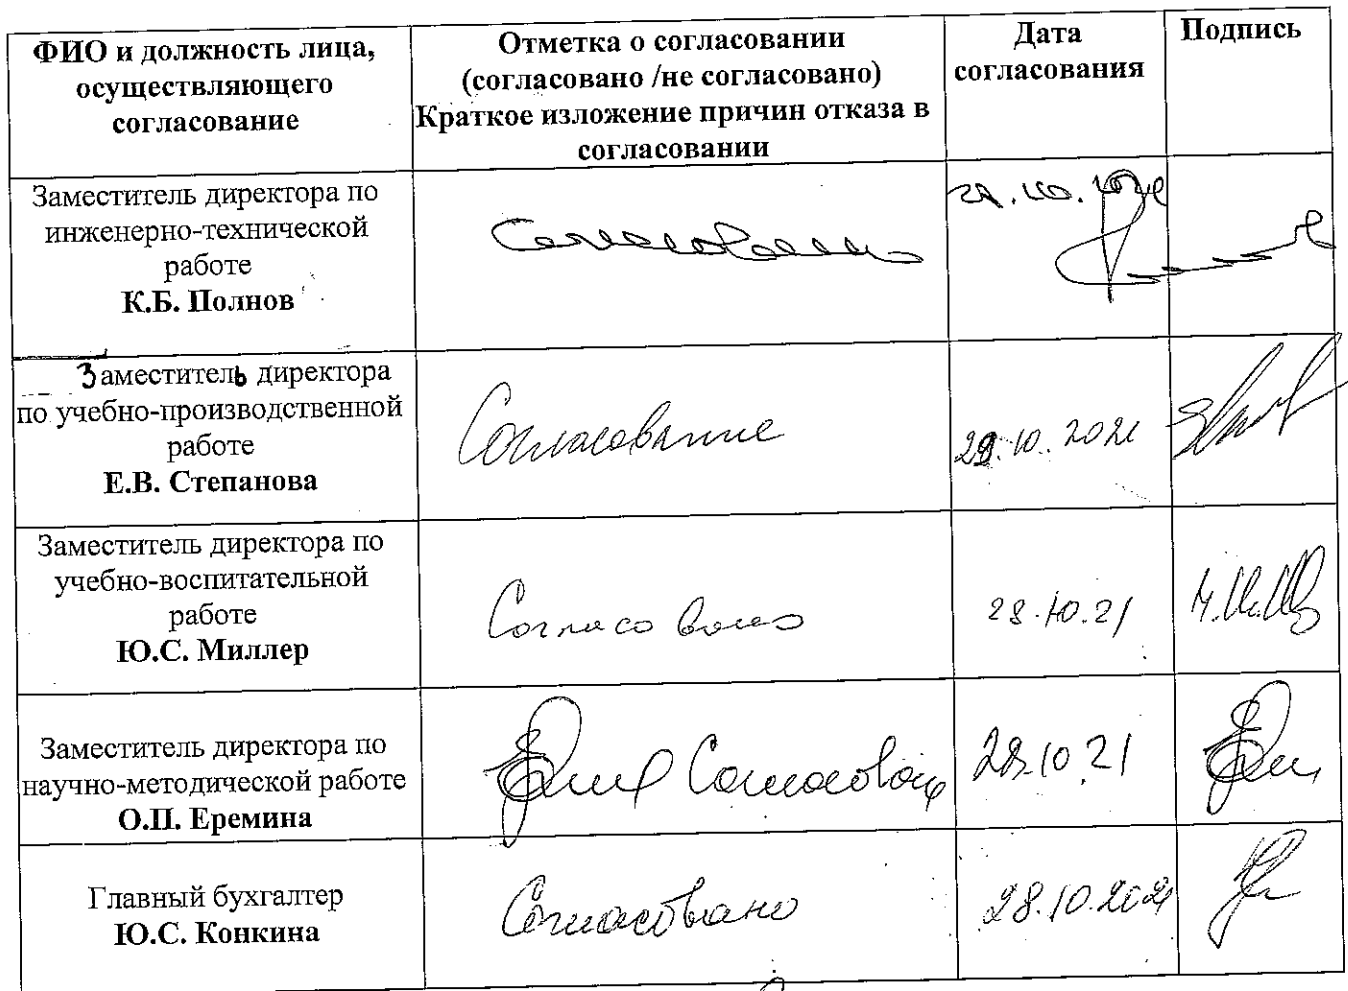 ФИО и должность лица,
осуществляющего
согласование
Отметка о согласовании
(согласовано /не согласовано)
Краткое изложение причин отказа в
согласовании
Дата
согласования
Подпись
Заместитель директора по
инженерно-технической
работе
К.Б. Полнов
Согласовано
Заместитель директора
по учебно-производственной
работе
Е.В. Степанова
Согласование
29.10.2021
Заместитель директора по
учебно-воспитательной
работе
Ю.С. Миллер
Согласовано
28.10.21
Заместитель директора по
научно-методической работе
О.П. Еремина
Согласовано
28.10.21
Главный бухгалтер
Ю.С. Конкина
Согласовано
28.10.2021